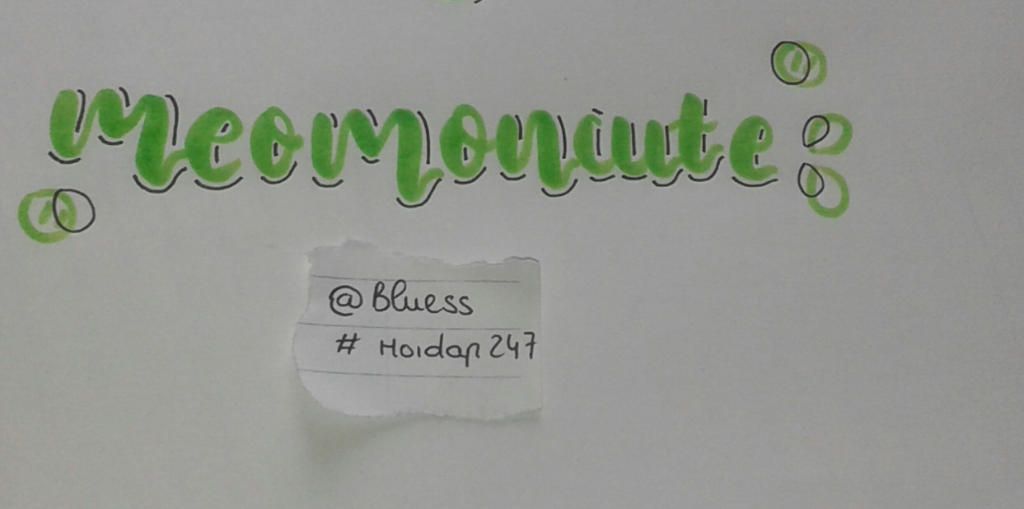 meomoncute
@Bluess
# Hoidap247